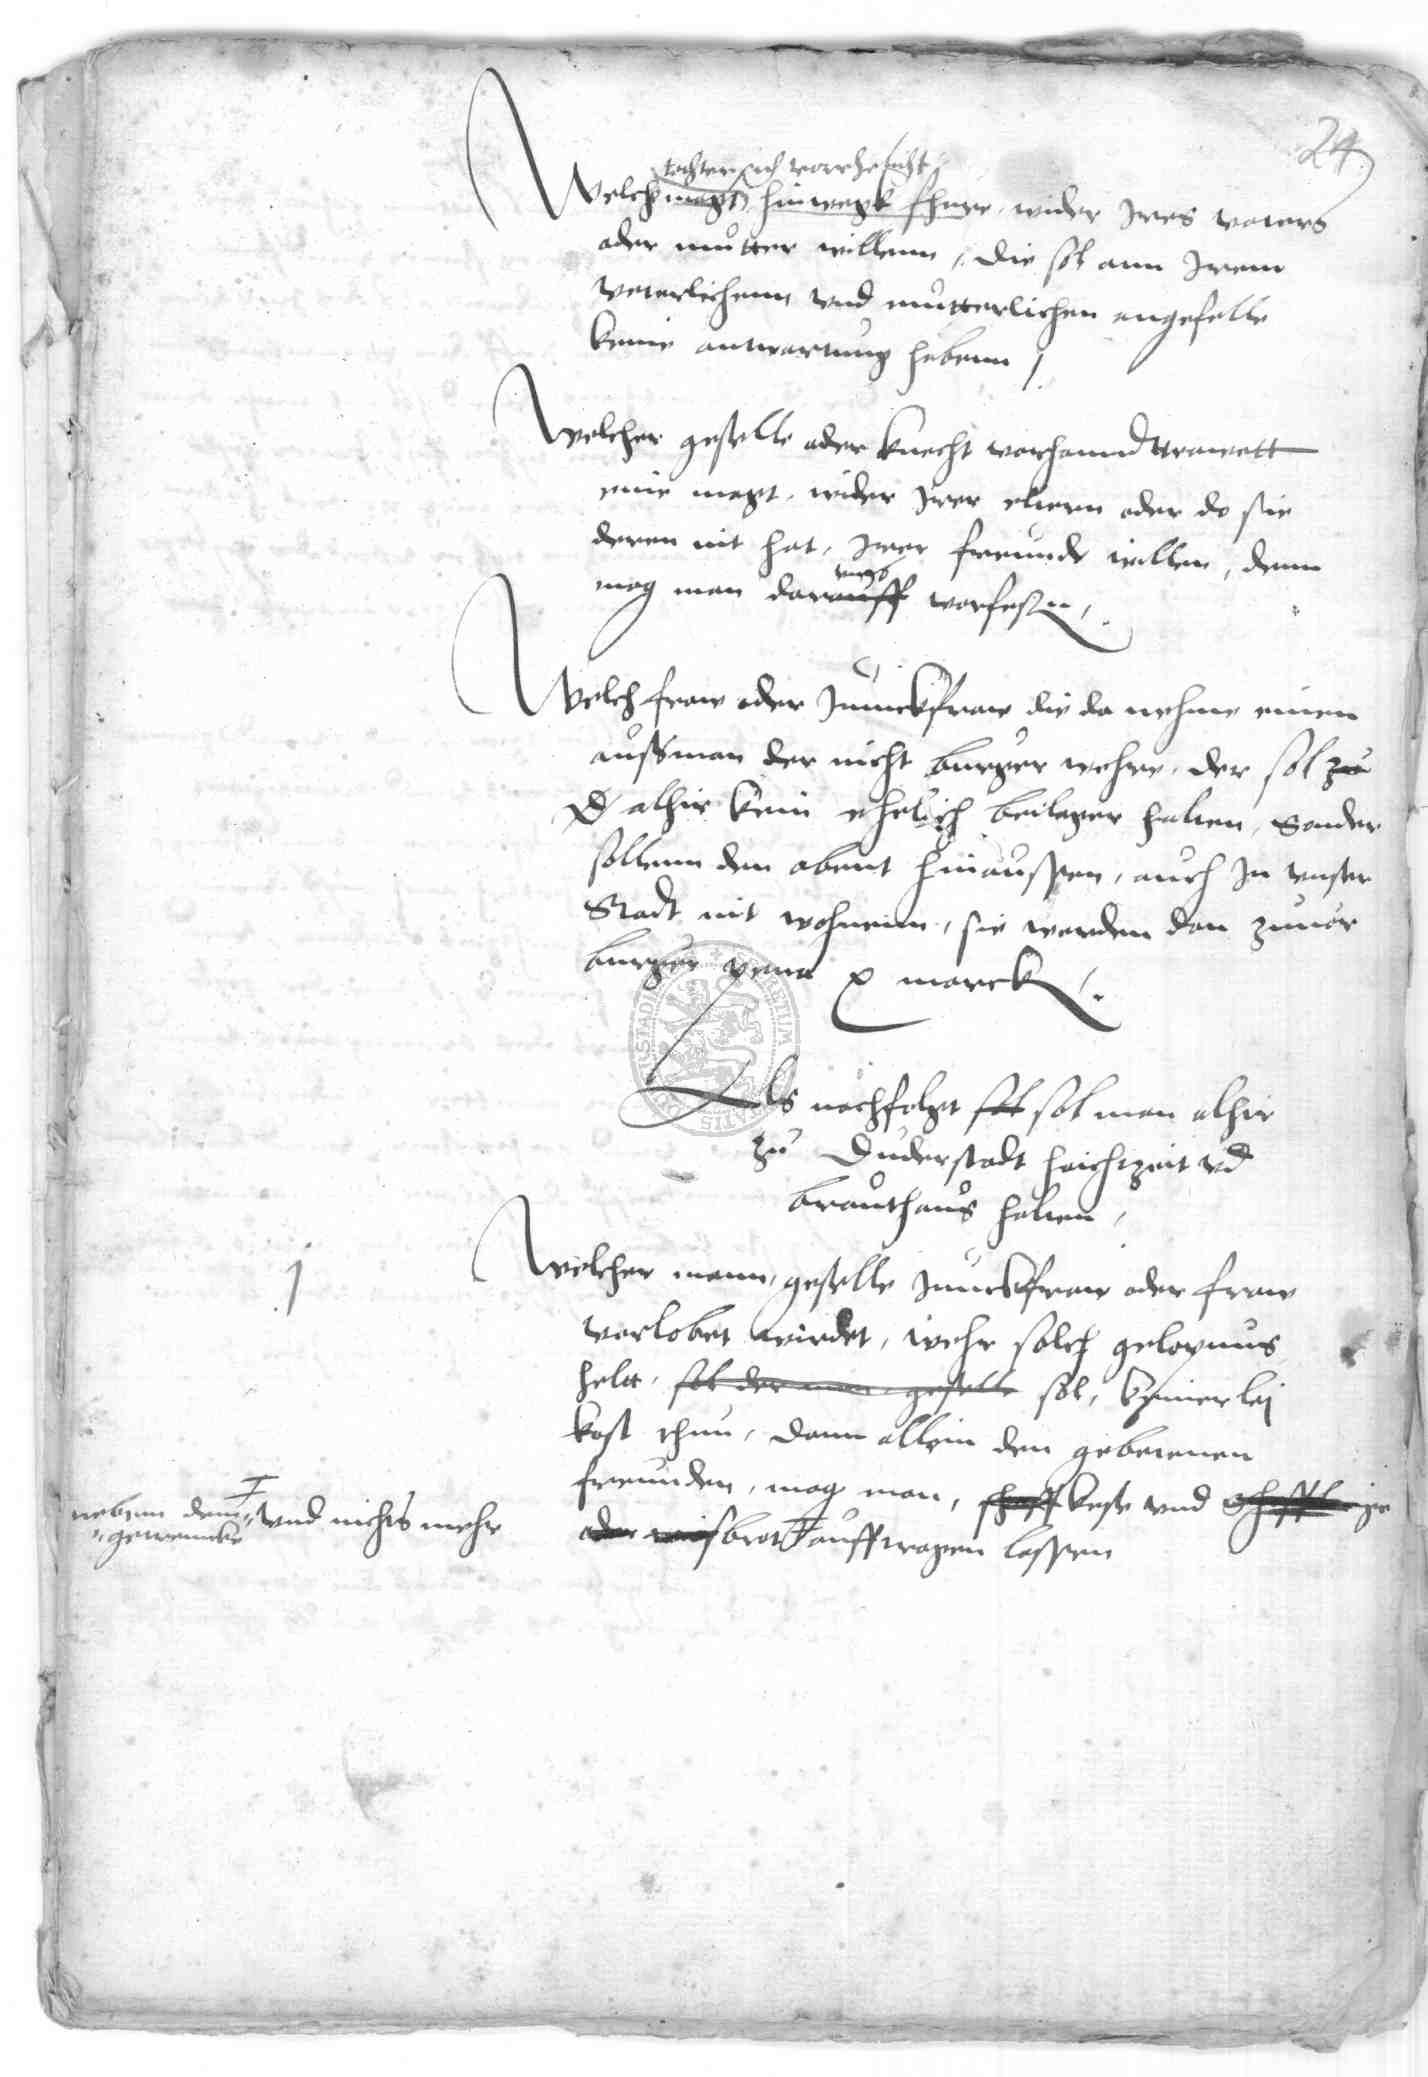 24
tochter sich vorehelicht
Welch magt hinwegk fhure, wider Ires vaters
oder mutter willenn, die sol ann Irem
veterlichenn vnd mutterlichen angefelle
keine antwartung habenn
Welcher geselle oder knecht vorhanndttrawett
eine magt, wider Irer eltern oder do sie
deren nit hat, Irer freunde willen, denn
mog man darauff vorfesten
Welch fraw oder Junckfraw die do nehme einen
aussman der nicht burger wehre, der sol zu
D alhir kein ehelich beilager halten, Sonder
sollenn den abent hinaussen, auch In vnser
Stadt nit wohnenn, sie werden dan zuuor
burger pena x marck
Als nachfolgt sol sol man alhir
zu Duderstadt hochtzeit vnd
brauthaus halten
1
Welcher mann, geselle Junckfraw oder fraw
vorlobet wirdet, wehr solch geloynus
helt, sol der man geselle sol, keinerlej
kost thun, dann allein den gebetenen
freunden, mog man, schaff kese vnd
oder brot aufftragen lassen
nebenn dem vnd nichts mehr
getrencke